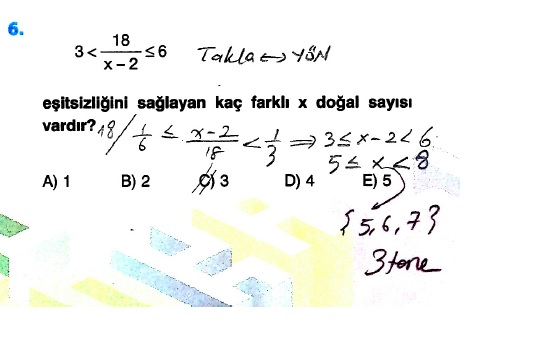 6.
3 < 18 / x – 2 ≤ 6 Takla ↔ YÖN
eşitsizliğini sağlayan kaç farklı x doğal sayısı
vardır? 18/ 1/6 ≤ x-2/18 < 1/3 ⇒ 3 ≤ x-2 < 6
5 ≤ x < 8
A) 1 B) 2 C) 3 D) 4 E) 5
{5,6,7}
3 tane